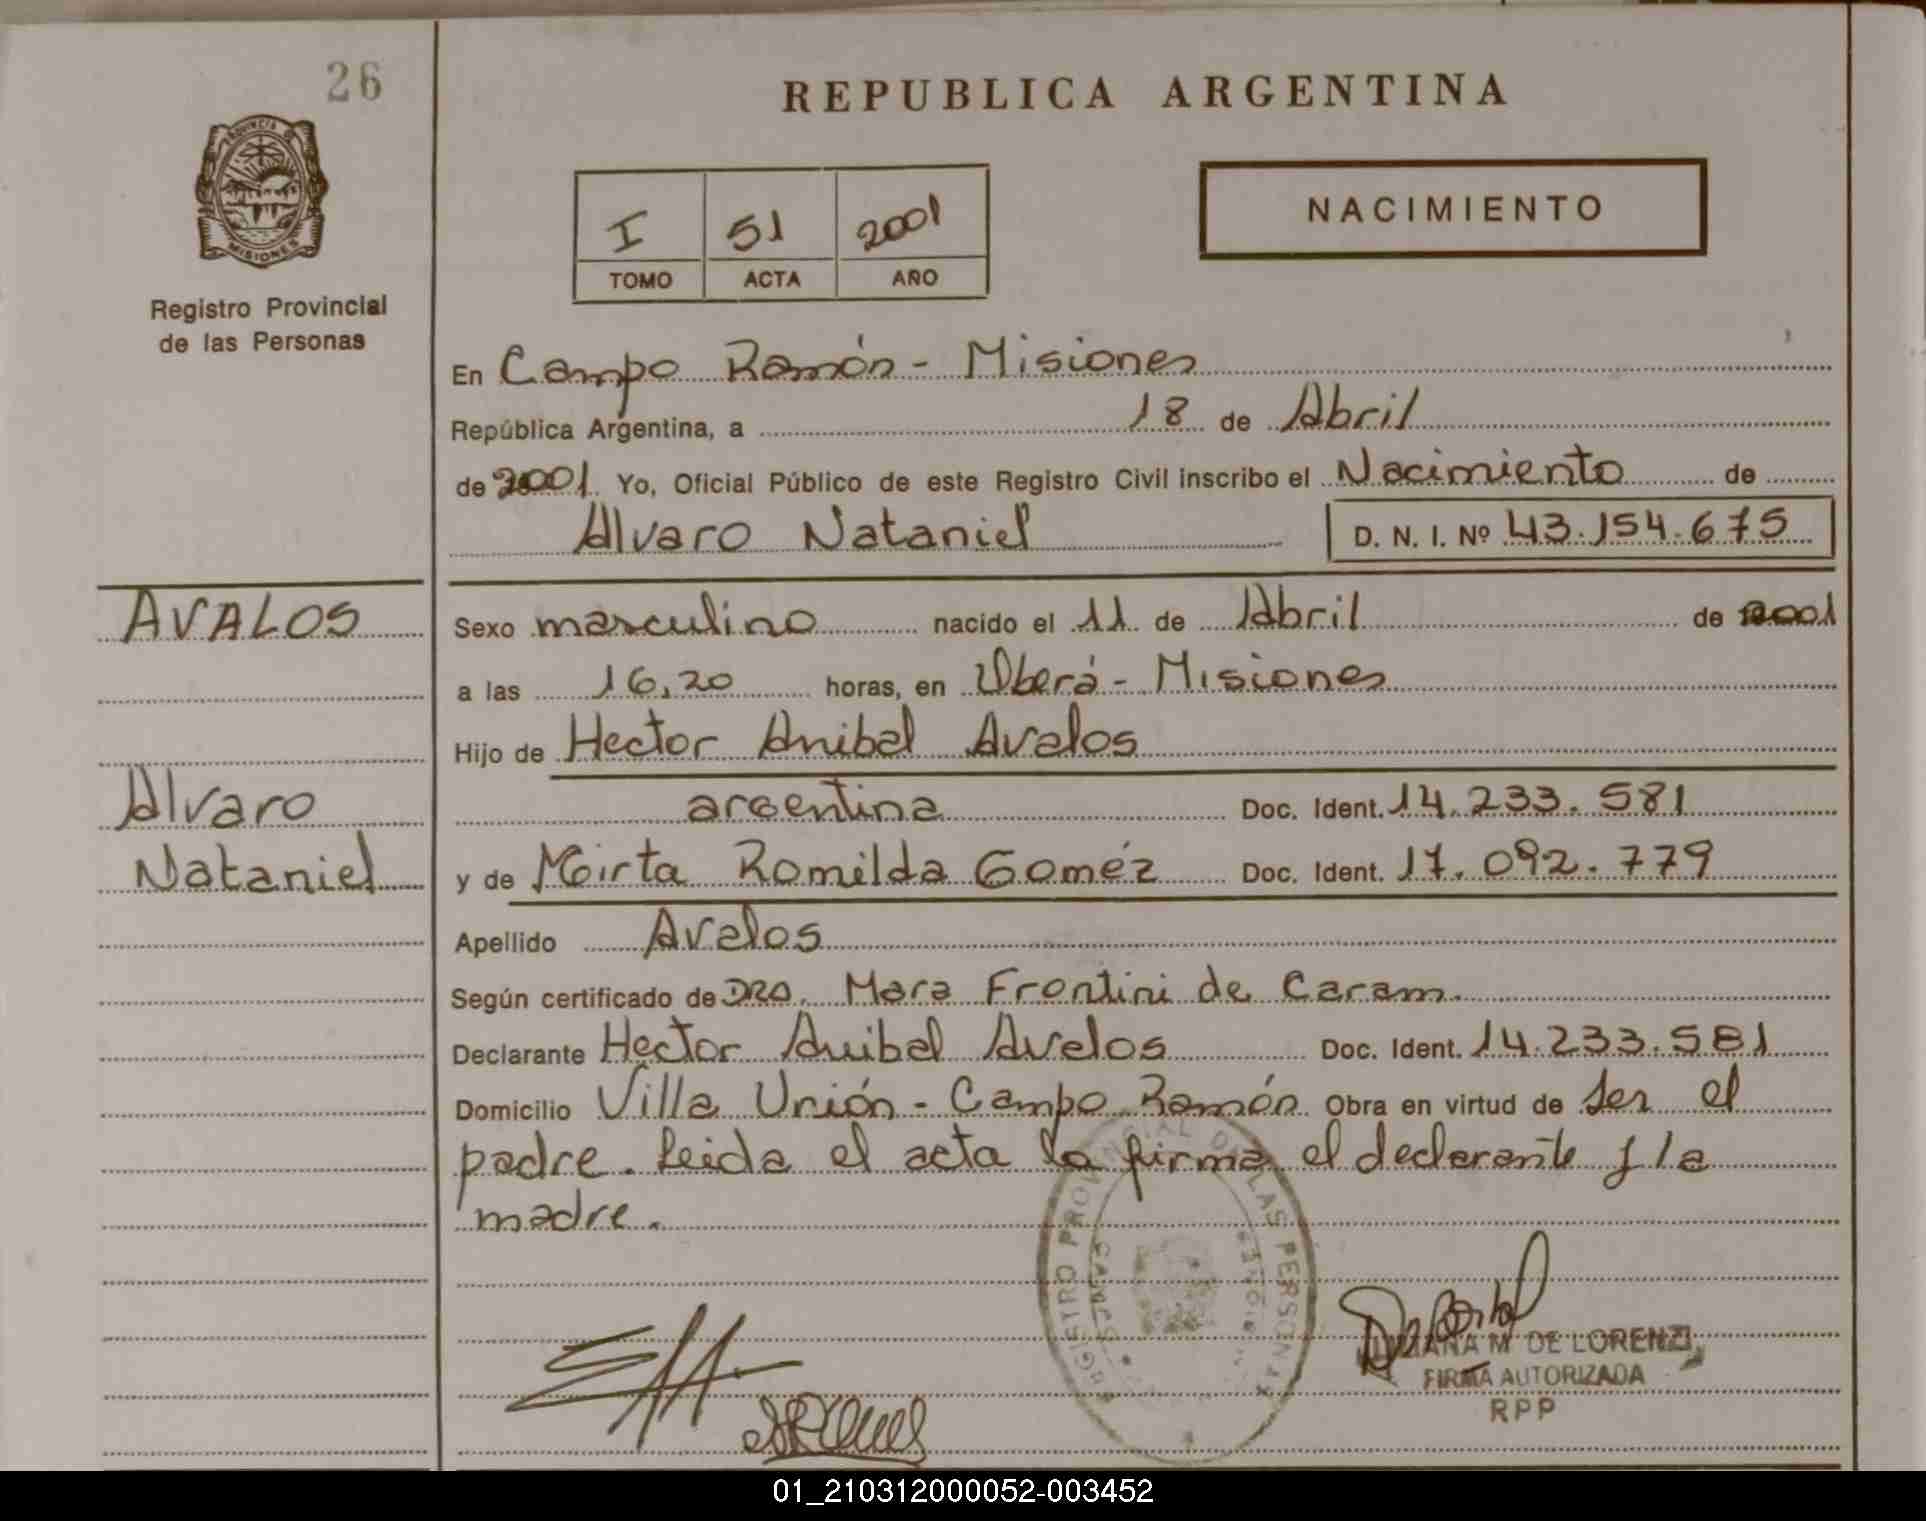 26
PROVINCIA DE
MISIONES
Registro Provincial
de las Personas
REPUBLICA ARGENTINA
I 51 2001
TOMO ACTA AÑO
NACIMIENTO
En Campo Ramón - Misiones
República Argentina, a 18 de Abril
de 2001. Yo, Oficial Público de este Registro Civil inscribo el Nacimiento de
Alvaro Nataniel D. N. I. Nº 43.154.675
AVALOS
Sexo masculino nacido el 11 de Abril de 2001
a las 16,20 horas, en Oberá - Misiones
Hijo de Hector Anibal Avalos
Alvaro
argentina Doc. Ident. 14.233.581
Nataniel
y de Mirta Romilda Goméz Doc. Ident. 17.092.779
Apellido Avalos
Según certificado de DRA. Mara Frontini de Caram.
Declarante Hector Anibal Avalos Doc. Ident. 14.233.581
Domicilio Villa Unión - Campo Ramón Obra en virtud de ser el
padre. Leida el acta la firma el declarante y la
madre.
REGISTRO PROVINCIAL DE LAS PERSONAS
MISIONES
DE LORENZI
FIRMA AUTORIZADA
RPP
01_210312000052-003452